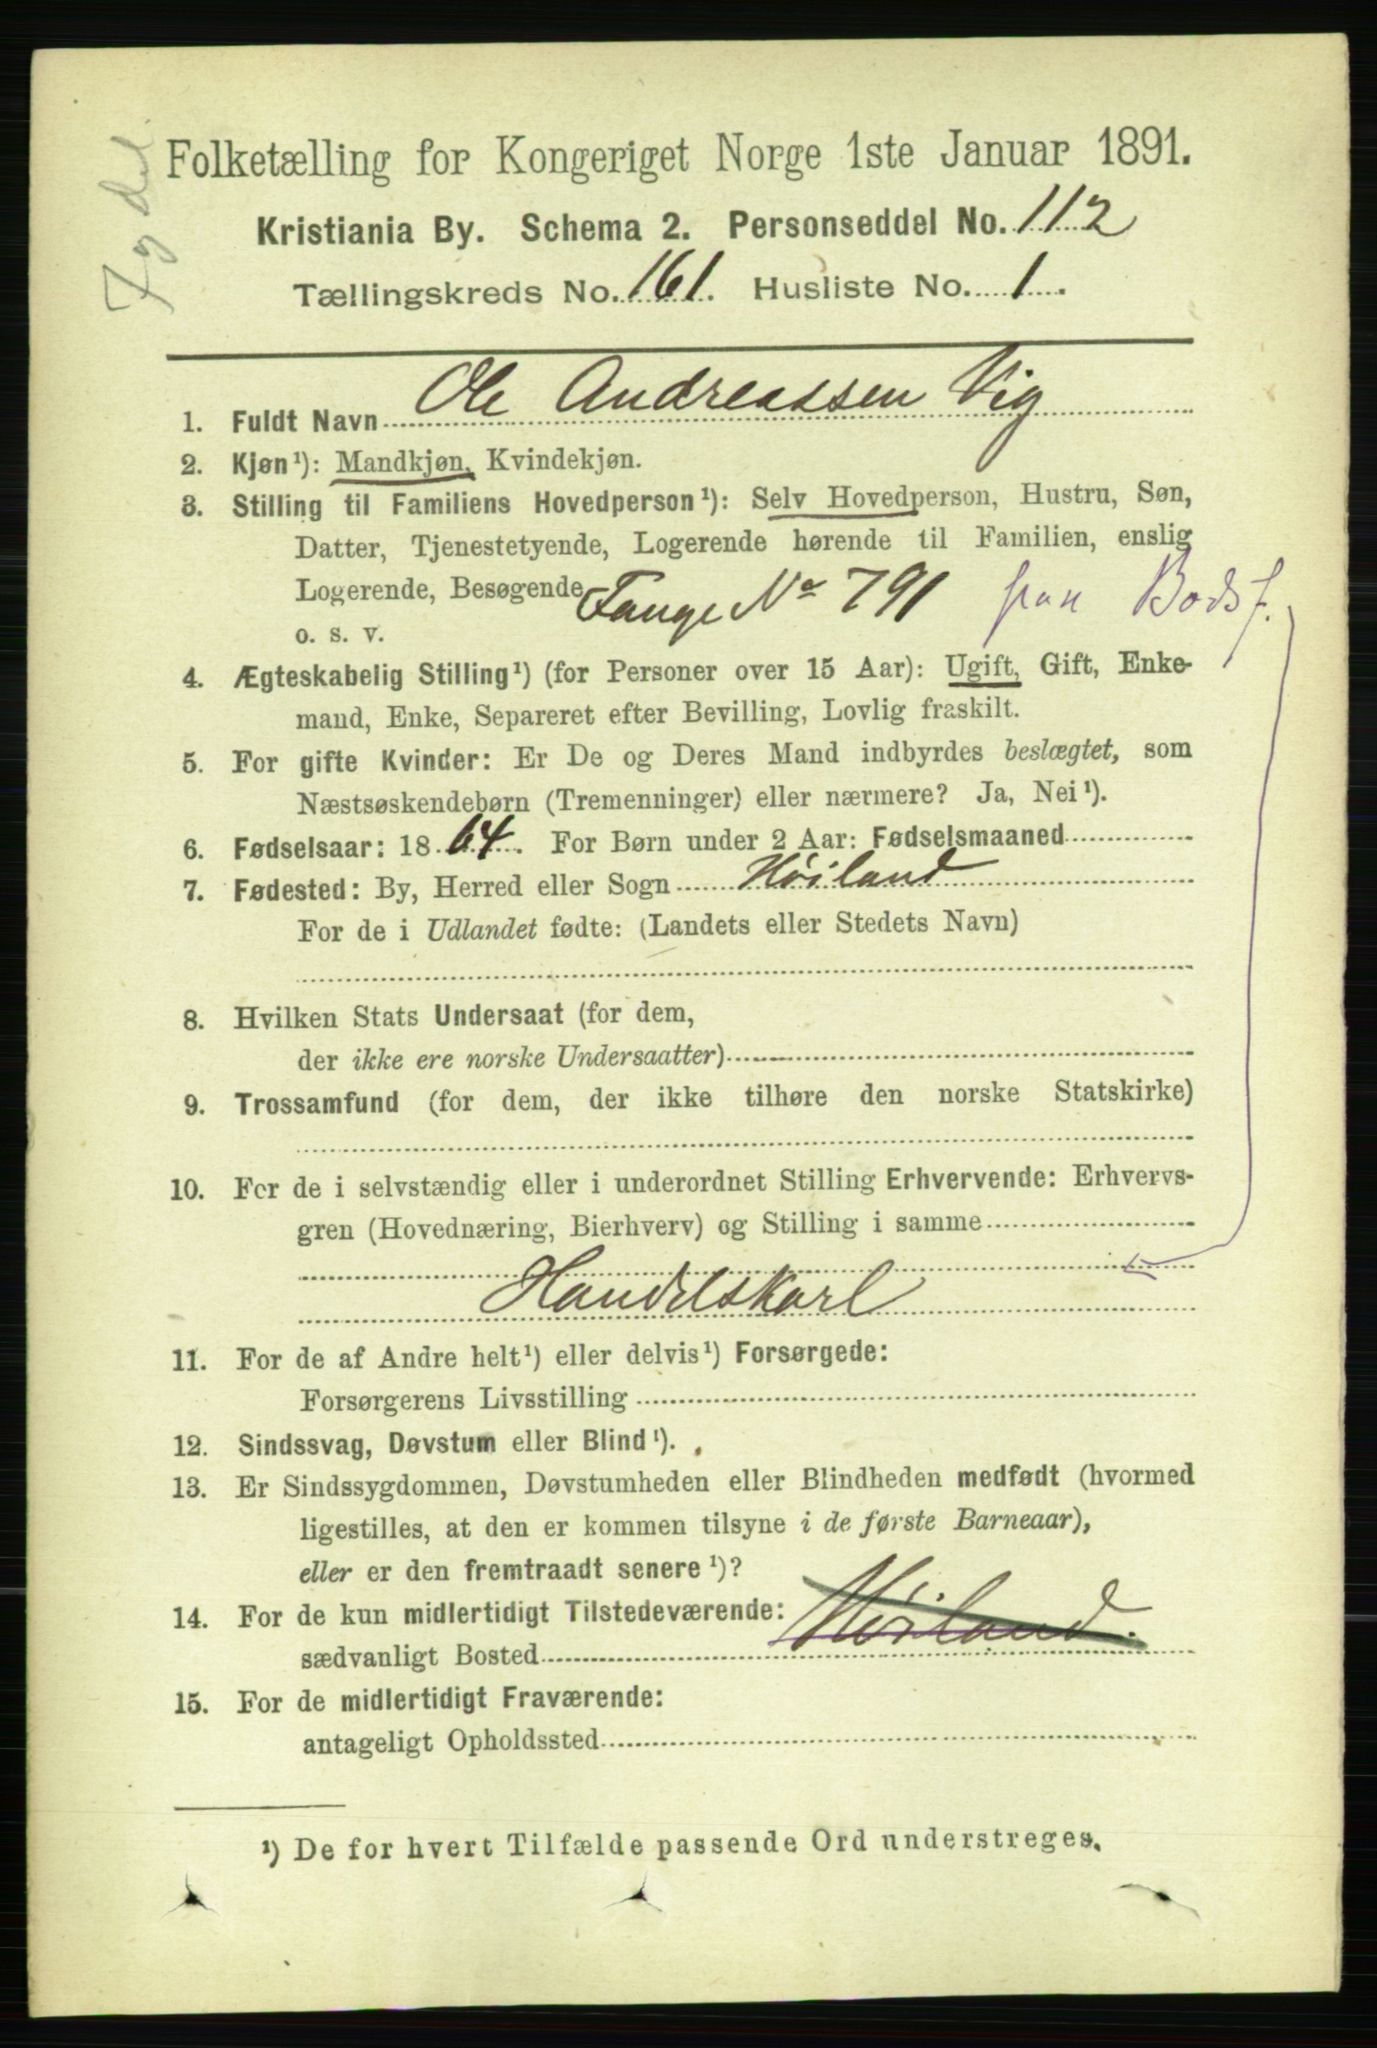 Folketælling for Kongeriget Norge 1ste Januar 1891.
Kristiania By. Schema 2. Personseddel No. 112
Tællingskreds No. 161. Husliste No. 1.
1. Fuldt Navn Ole Andreassen Vig
2. Kjøn¹): Mandkjøn, Kvindekjøn.
3. Stilling til Familiens Hovedperson¹): Selv Hovedperson, Hustru, Søn,
Datter, Tjenestetyende, Logerende hørende til Familien, enslig
Logerende, Besøgende Fange No 791 paa Bodsf.
o. s. v.
4. Ægteskabelig Stilling¹) (for Personer over 15 Aar): Ugift, Gift, Enke-
mand, Enke, Separeret efter Bevilling, Lovlig fraskilt.
5. For gifte Kvinder: Er De og Deres Mand indbyrdes beslægtet, som
Næstsøskendebørn (Tremenninger) eller nærmere? Ja, Nei¹).
6. Fødselsaar: 1864. For Børn under 2 Aar: Fødselsmaaned
7. Fødested: By, Herred eller Sogn Høiland
For de i Udlandet fødte: (Landets eller Stedets Navn)
8. Hvilken Stats Undersaat (for dem,
der ikke ere norske Undersaatter)
9. Trossamfund (for dem, der ikke tilhøre den norske Statskirke)
10. For de i selvstændig eller i underordnet Stilling Erhvervende: Erhvervs-
gren (Hovednæring, Bierhverv) og Stilling i samme
Handelskarl
11. For de af Andre helt¹) eller delvis¹) Forsørgede:
Forsørgerens Livsstilling
12. Sindssvag, Døvstum eller Blind¹).
13. Er Sindssygdommen, Døvstumheden eller Blindheden medfødt (hvormed
ligestilles, at den er kommen tilsyne i de første Barneaar),
eller er den fremtraadt senere¹)?
14. For de kun midlertidigt Tilstedeværende: Høiland.
sædvanligt Bosted
15. For de midlertidigt Fraværende:
antageligt Opholdssted
¹) De for hvert Tilfælde passende Ord understreges.